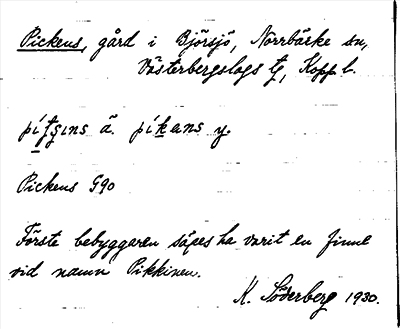 Pickens, gård i Björsjö, Norrbärke sn,
Västerbergslags tg, Kopp l.
pítsins ä. píkans y.
Pickens G90
Förste bebyggaren säges ha varit en finne
vid namn Pikkinen.
K. Söderberg 1930.